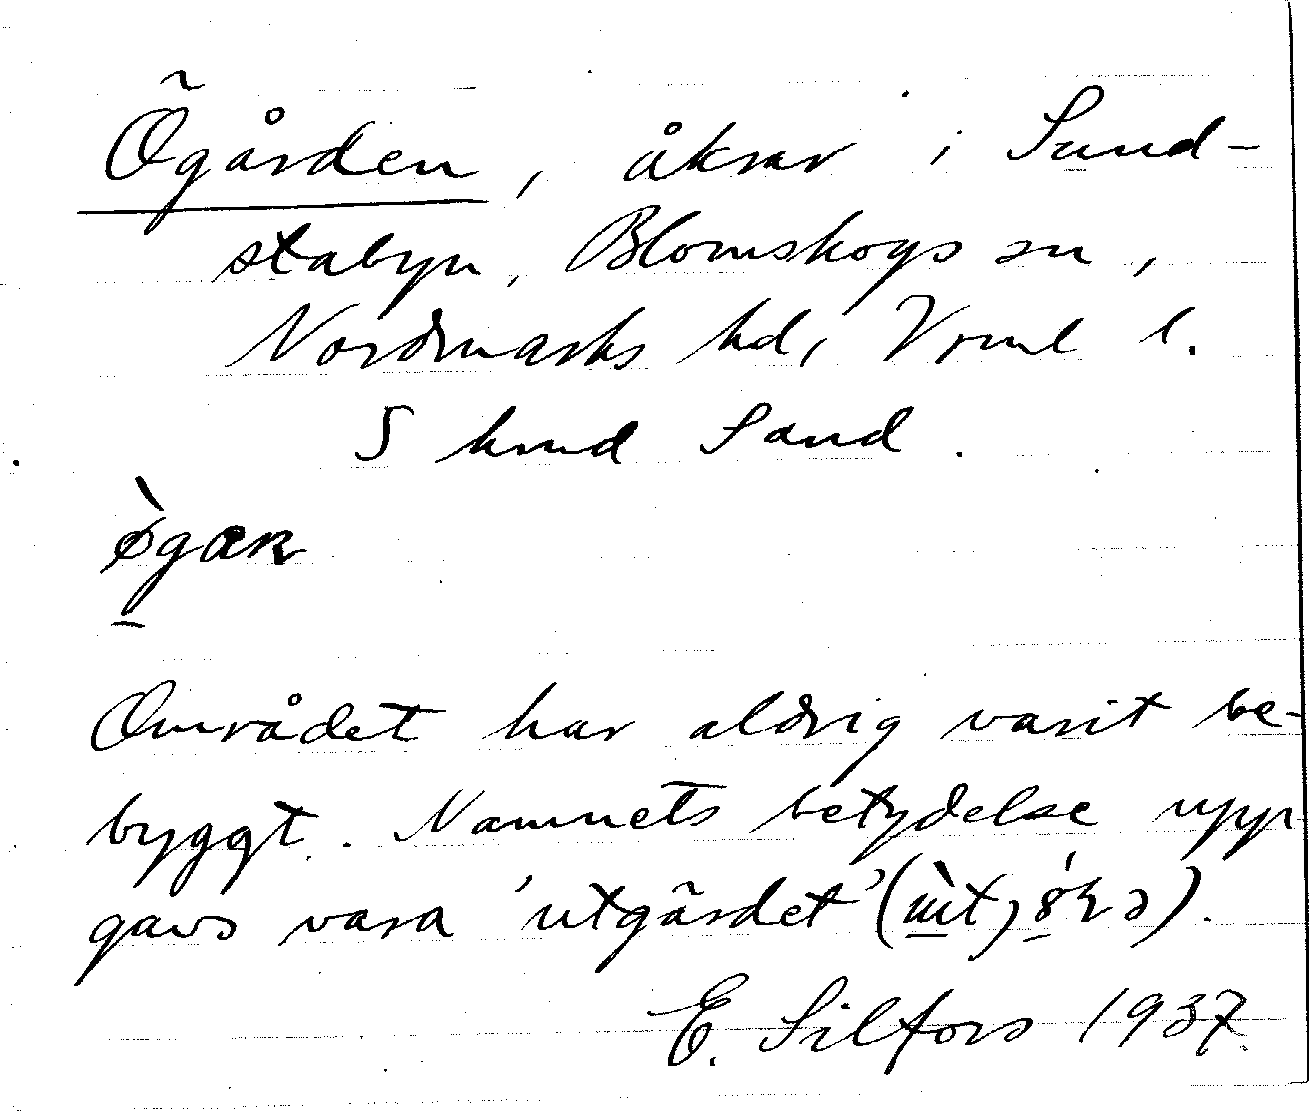 Ögården, åkrar i Sund-
stabyn, Blomskogs sn,
Nordmarks hd, Vrml l.
S kmd Sand.
Området har aldrig varit be-
byggt. Namnets betydelse upp-
gavs vara 'utgärdet'
E. Silfors 1937.